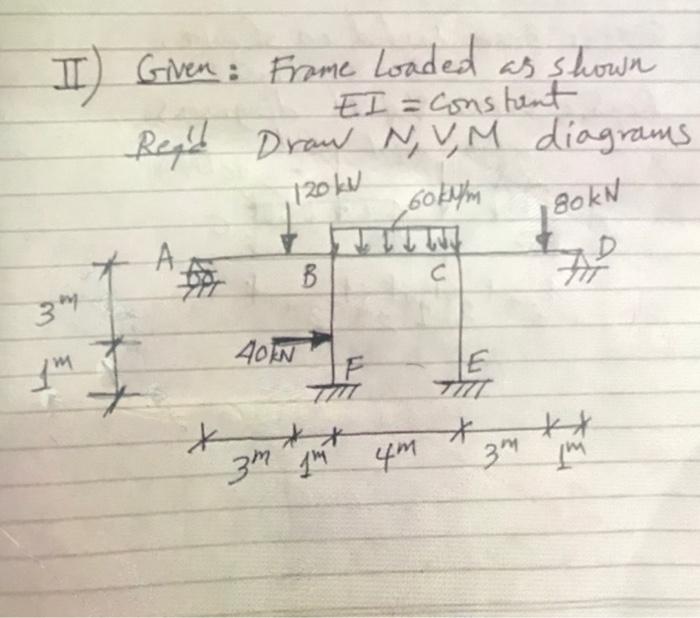 II) Given: Frame Loaded as shown
EI = Constant
Req'd Draw N, V, M diagrams
120 kN 60 kN/m 80 kN
A B C D
3m
40kN
1m
F E
3m 1m 4m 3m 1m